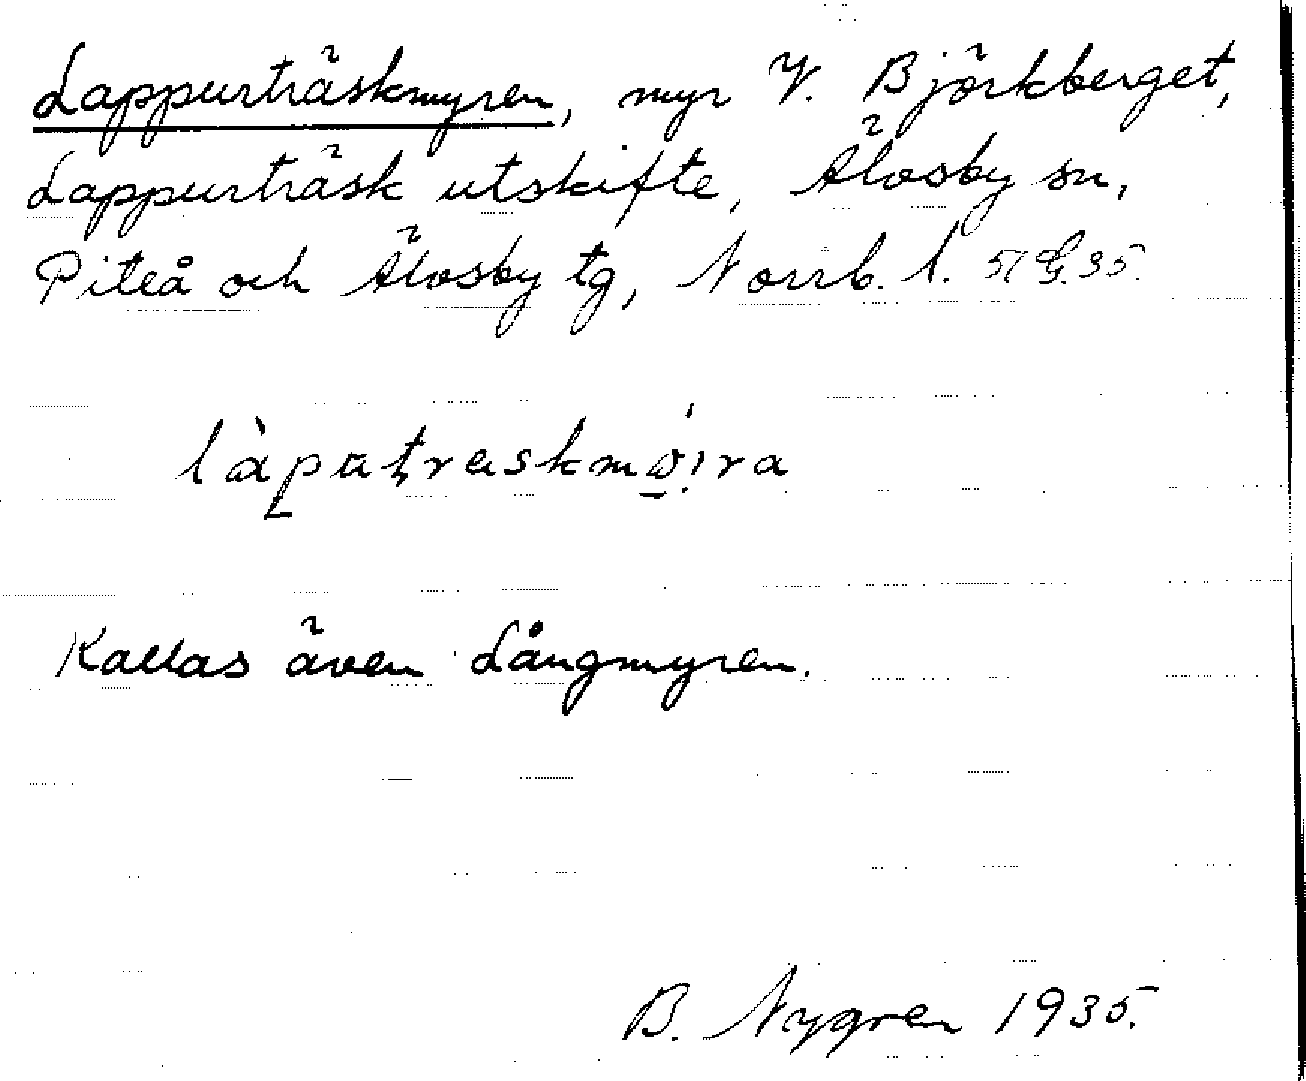 Lappurträskmyren, myr V. Björkberget,
Lappurträsk utskifte, Älvsby sn,
Piteå och Älvsby tg, Norrb. l. 51 G. 35.
làpatraskmø̀ira
Kallas även Långmyren.
B. Nygren 1935.